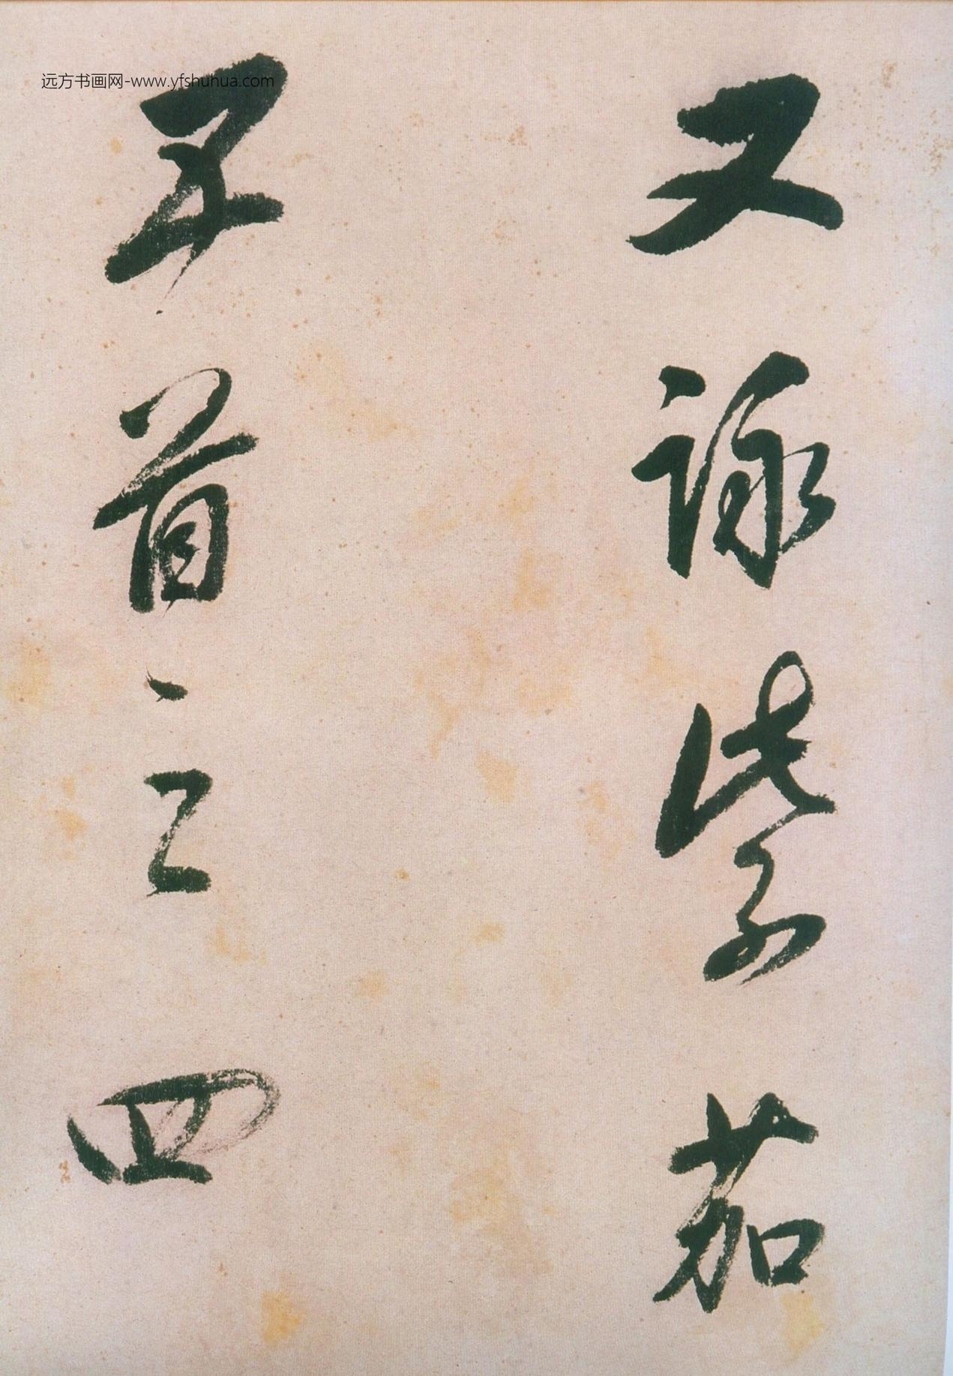 远方书画网-www.yfshuhua.com
又詠紫茄
子首之四